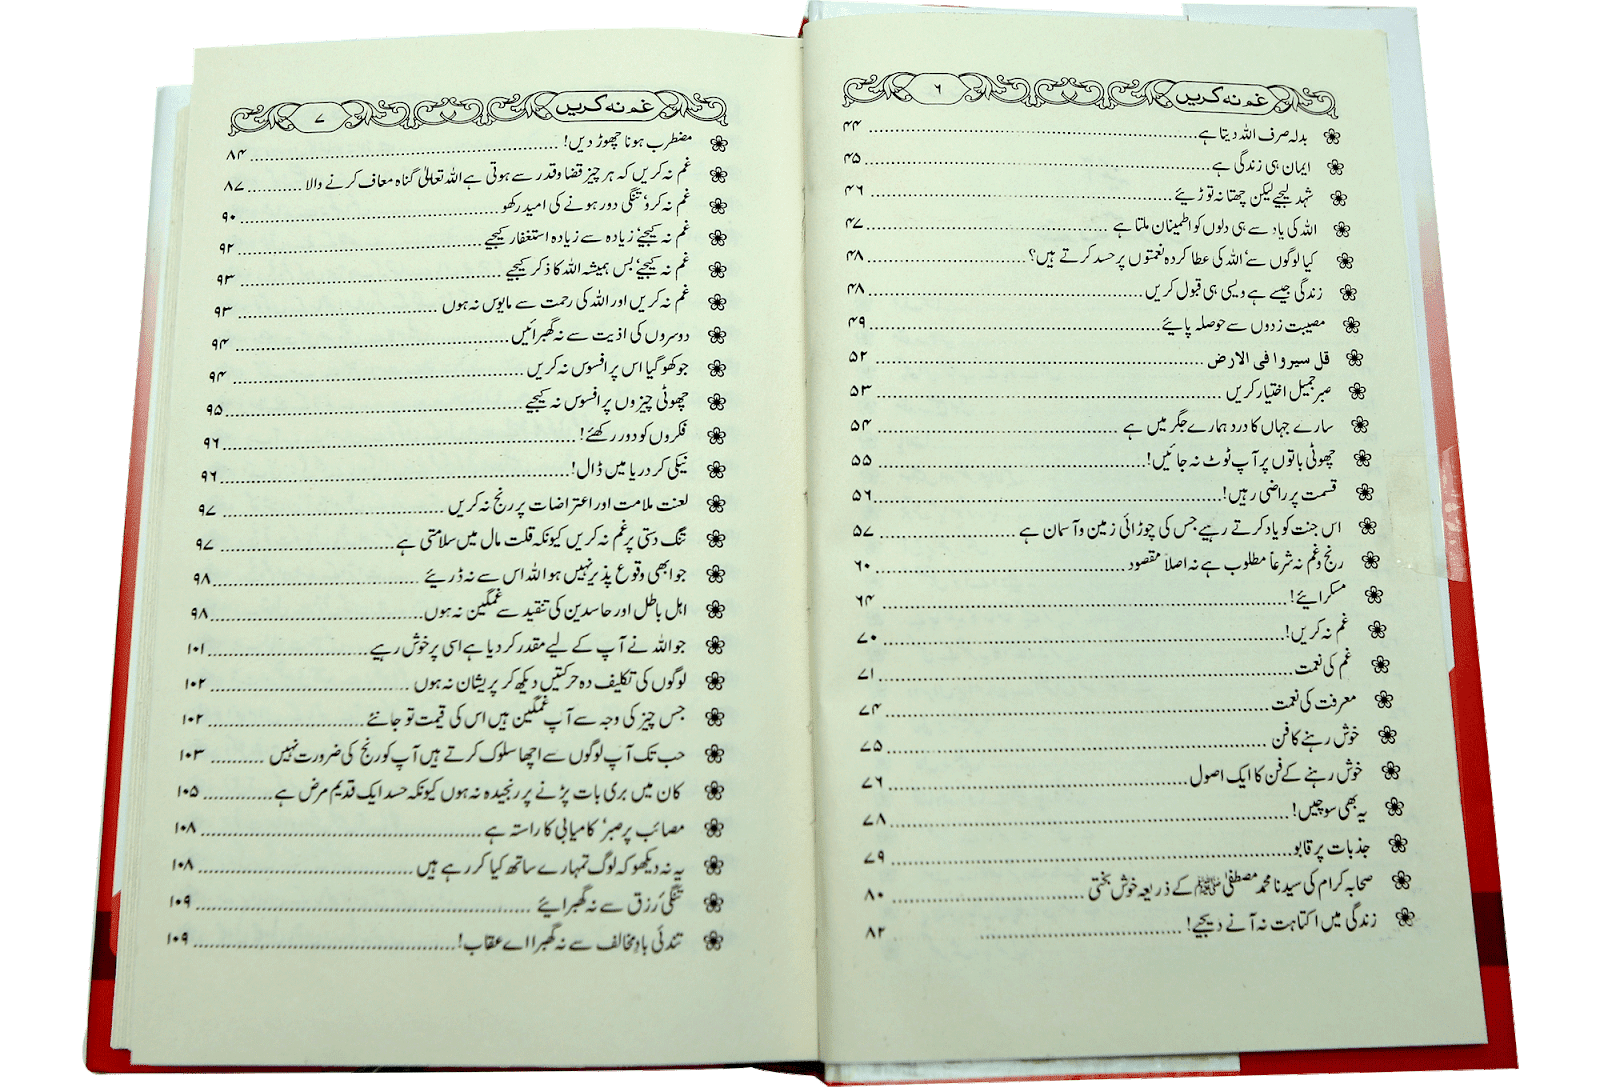 غم نہ کریں ۶
بدلہ صرف اللہ دیتا ہے ........ ۴۴
ایمان ہی زندگی ہے ........ ۴۵
شہد لیجیے لیکن چھتا نہ توڑیئے ........ ۴۶
اللہ کی یاد سے ہی دلوں کو اطمینان ملتا ہے ........ ۴۷
کیا لوگوں سے‘ اللہ کی عطا کردہ نعمتوں پر حسد کرتے ہیں؟ ........ ۴۸
زندگی جیسے ہے ویسی ہی قبول کریں ........ ۴۸
مصیبت زدوں سے حوصلہ پایئے ........ ۴۹
قل سیروا فی الارض ........ ۵۲
صبر جمیل اختیار کریں ........ ۵۳
سارے جہاں کا درد ہمارے جگر میں ہے ........ ۵۴
چھوٹی باتوں پر آپ ٹوٹ نہ جائیں! ........ ۵۵
قسمت پر راضی رہیں! ........ ۵۶
اس جنت کو یاد کرتے رہیے جس کی چوڑائی زمین و آسمان ہے ........ ۵۷
رنج و غم نہ شرعاً مطلوب ہے نہ اصلاً مقصود ........ ۶۰
مسکرایئے! ........ ۶۴
غم نہ کریں! ........ ۷۰
غم کی نعمت ........ ۷۱
معرفت کی نعمت ........ ۷۴
خوش رہنے کا فن ........ ۷۵
خوش رہنے کے فن کا ایک اصول ........ ۷۶
یہ بھی سوچیں! ........ ۷۸
جذبات پر قابو ........ ۷۹
صحابہ کرام کی سیدنا محمد مصطفیٰ ﷺ کے ذریعہ خوش بختی ........ ۸۰
زندگی میں اکتاہت نہ آنے دیجیے! ........ ۸۲
غم نہ کریں ۷
مضطرب ہونا چھوڑ دیں! ........ ۸۴
غم نہ کریں کہ ہر چیز قضا و قدر سے ہوتی ہے اللہ تعالیٰ گناہ معاف کرنے والا ........ ۸۷
غم نہ کرو‘ تنگی دور ہونے کی امید رکھو ........ ۹۰
غم نہ کیجئے‘ زیادہ سے زیادہ استغفار کیجیے ........ ۹۲
غم نہ کیجئے‘ بس ہمیشہ اللہ کا ذکر کیجیے ........ ۹۳
غم نہ کریں اور اللہ کی رحمت سے مایوس نہ ہوں ........ ۹۳
دوسروں کی اذیت سے نہ گھبرائیں ........ ۹۴
جو کھو گیا اس پر افسوس نہ کریں ........ ۹۴
چھوٹی چیزوں پر افسوس نہ کیجیے ........ ۹۵
فکروں کو دور رکھئے! ........ ۹۶
نیکی کر دریا میں ڈال! ........ ۹۶
لعنت ملامت اور اعتراضات پر رنج نہ کریں ........ ۹۷
تنگ دستی پر غم نہ کریں کیونکہ قلت مال میں سلامتی ہے ........ ۹۷
جو ابھی وقوع پذیر نہیں ہوا للہ اس سے نہ ڈریئے ........ ۹۸
اہل باطل اور حاسدین کی تنقید سے غمگین نہ ہوں ........ ۹۸
جو اللہ نے آپ کے لیے مقدر کر دیا ہے اسی پر خوش رہیے ........ ۱۰۱
لوگوں کی تکلیف دہ حرکتیں دیکھ کر پریشان نہ ہوں ........ ۱۰۲
جس چیز کی وجہ سے آپ غمگین ہیں اس کی قیمت تو جانئے ........ ۱۰۲
حب تک آپ لوگوں سے اچھا سلوک کرتے ہیں آپ کو رنج کی ضرورت نہیں ........ ۱۰۳
کان میں بری بات پڑنے پر رنجیدہ نہ ہوں کیونکہ حسد ایک قدیم مرض ہے ........ ۱۰۵
مصائب پر صبر‘ کامیابی کا راستہ ہے ........ ۱۰۸
یہ نہ دیکھو کہ لوگ تمہارے ساتھ کیا کر رہے ہیں ........ ۱۰۸
تنگیٔ رزق سے نہ گھبرایئے ........ ۱۰۹
تندئی بادِ مخالف سے نہ گھبرا اے عقاب! ........ ۱۰۹